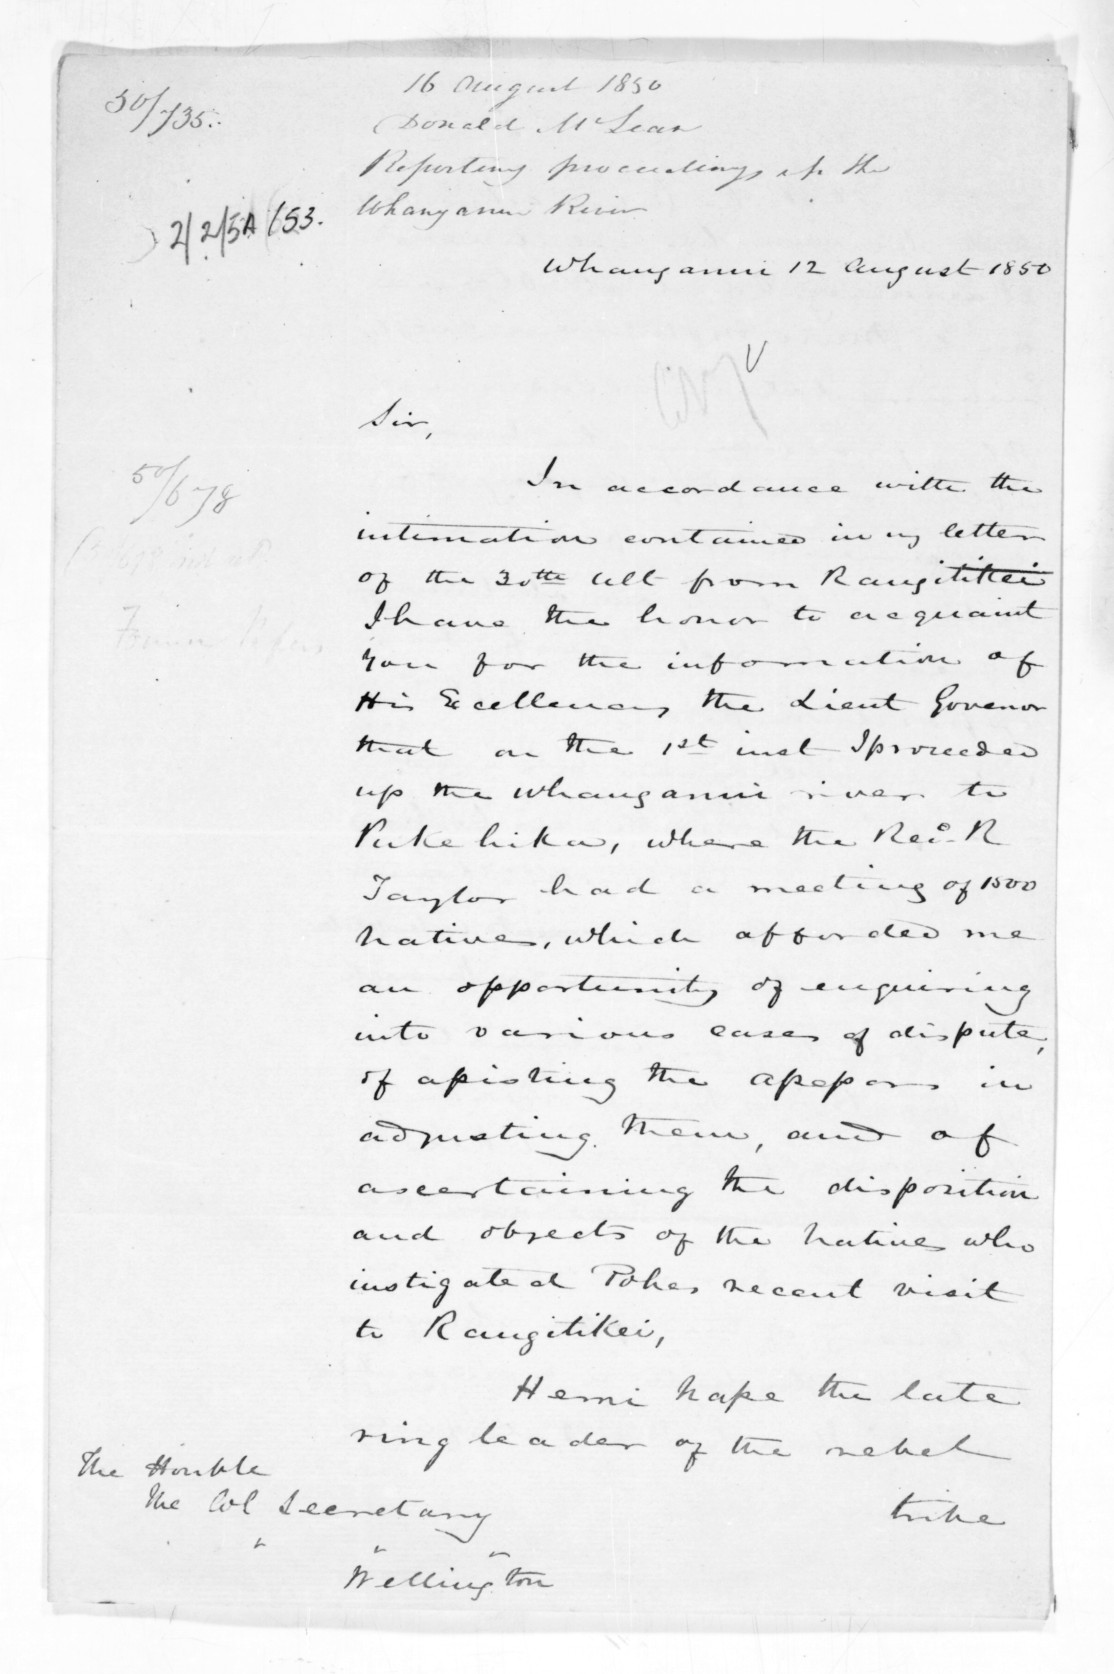 50/735.
16 August 1850
Donald McLean
Reporting proceedings up the
Whanganui River
2/2/5A/53.
Whanganui 12 August 1850
Sir,
50/678
In accordance with the
intimation contained in my letter
of the 30th Ult from Rangitikei
I have the honor to acquaint
you for the information of
His Excellency the Lieut Govenor
that on the 1st inst I proceeded
up the Whanganui river to
Pukehika, where the Revd. R
Taylor had a meeting of 1500
natives, which afforded me
an opportunity of enquiring
into various cases of dispute,
of assisting the assessors in
adjusting them, and of
ascertaining the disposition
and objects of the natives who
instigated Pohes recent visit
to Rangitikei,
Hemi hape the late
ring leader of the rebel
tribe
The Honble
The Col Secretary
" " "
Wellington